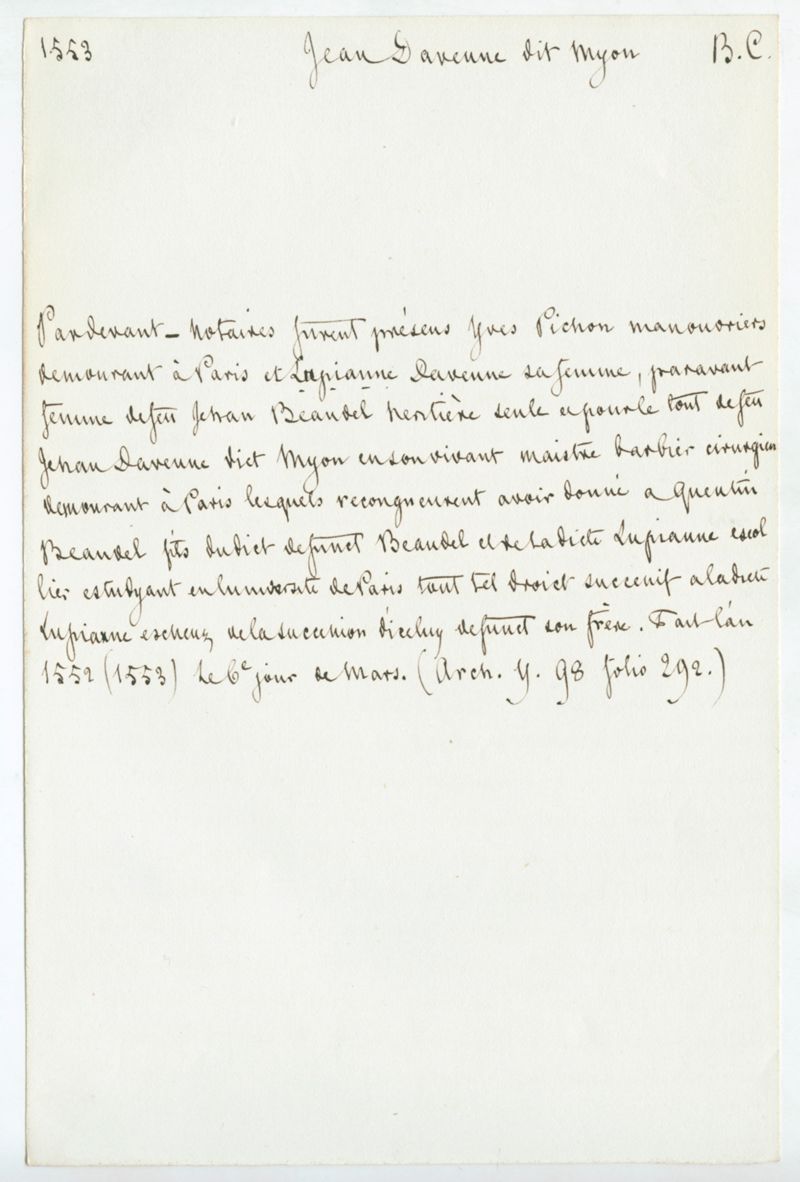 1553 Jean Davenne dit Myon B.C.
Pardevant – notaires furent présens Yves Pichon manouvriers
demourant à Paris et Lupianne Davenne sa femme, paravant
femme de feu Jehan Beaudel heritière seule et pour le tout de feu
Jehan Davenne dict Myon en son vivant maistre barbier cirurgien
demourant à Paris lesquels recongneurent avoir donné a Quentin
Beaudel fils du dict defunct Beaudel et de la dicte Lupianne escol
lier estudyant en l'université de Paris tout tel droict successif a la dicte
Lupianne escheuz de la succession d'iceluy defunct son frère. Fait l'an
1552 (1553) le 6e jour de Mars. (Arch. Y. 98 folio 292.)